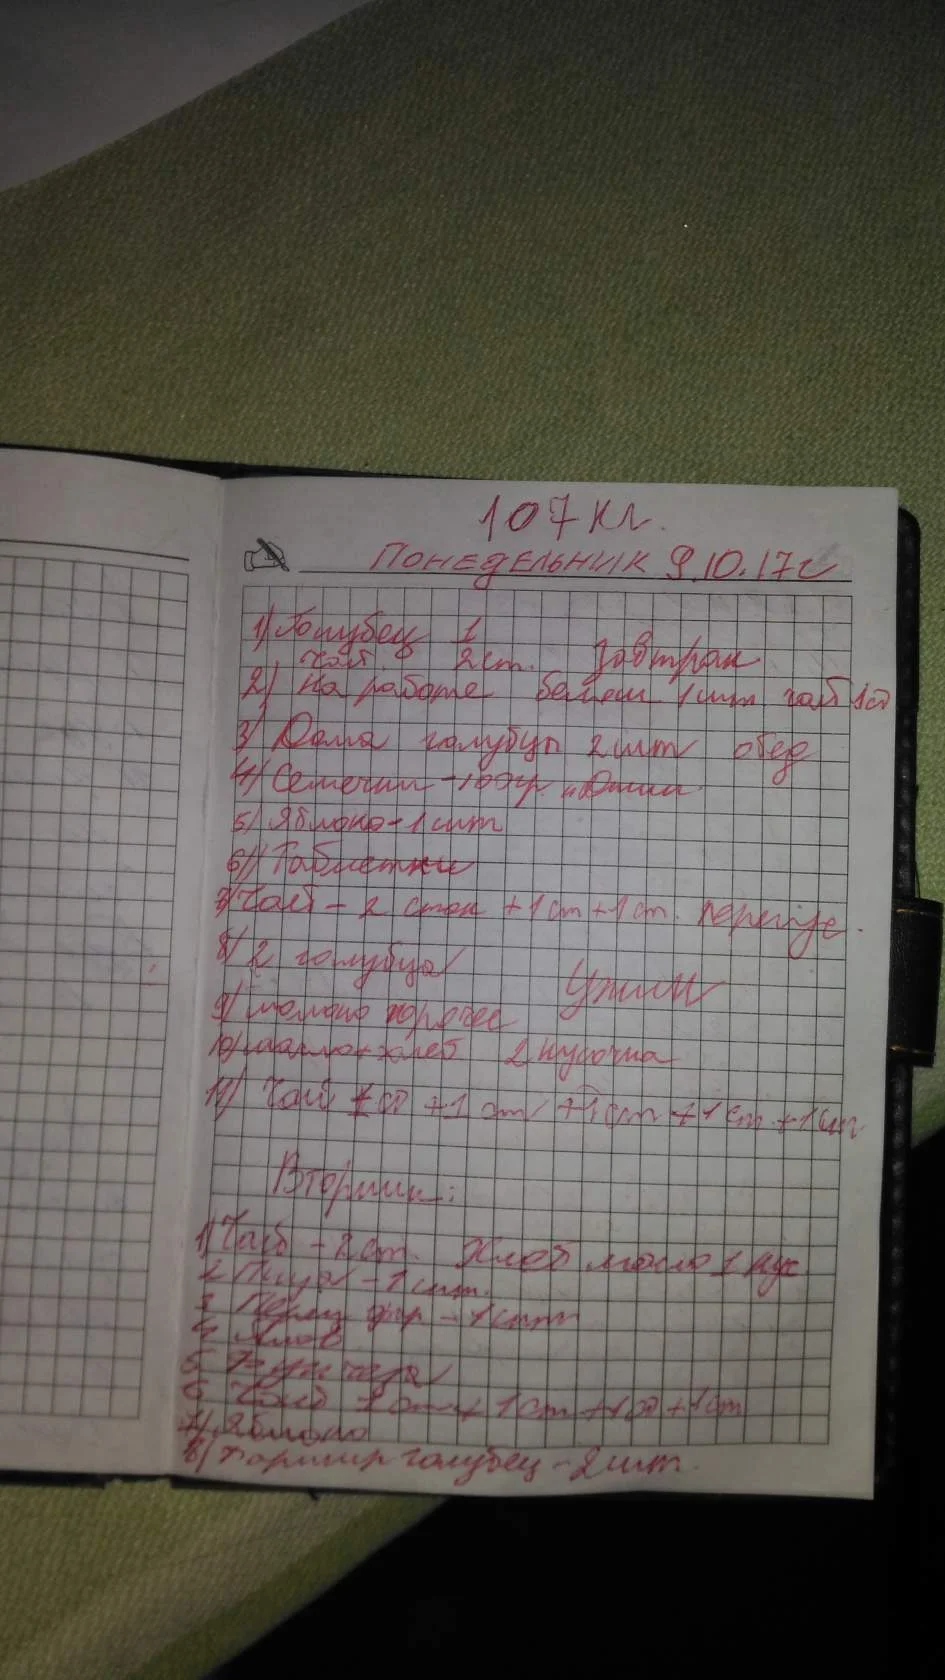 107 кг.
ПОНЕДЕЛЬНИК 9.10.17г
1) Голубец 1
чай 2 ст. Завтрак
2) На работе беляш 1 шт чай 1 ст
3) Дома голубцы 2 шт обед
4) Семечки - 100 гр.
5) Яблоко - 1 шт
6) Таблетки
7) Чай - 2 стак + 1 ст + 1 ст.
8) 2 голубца Ужин
9) молоко
10) масло + хлеб 2 кусочка
11) Чай ст + 1 ст + 1 ст + 1 ст + 1
Вторник:
1) Чай - 2 ст. Хлеб масло 1 кус
2 Пицца - 1 шт.
3 Перец фар - 1 шт
4
5
6 Чай ст + 1 ст + 1 ст + 1 ст
7) Яблоко
8) голубец - 2 шт.